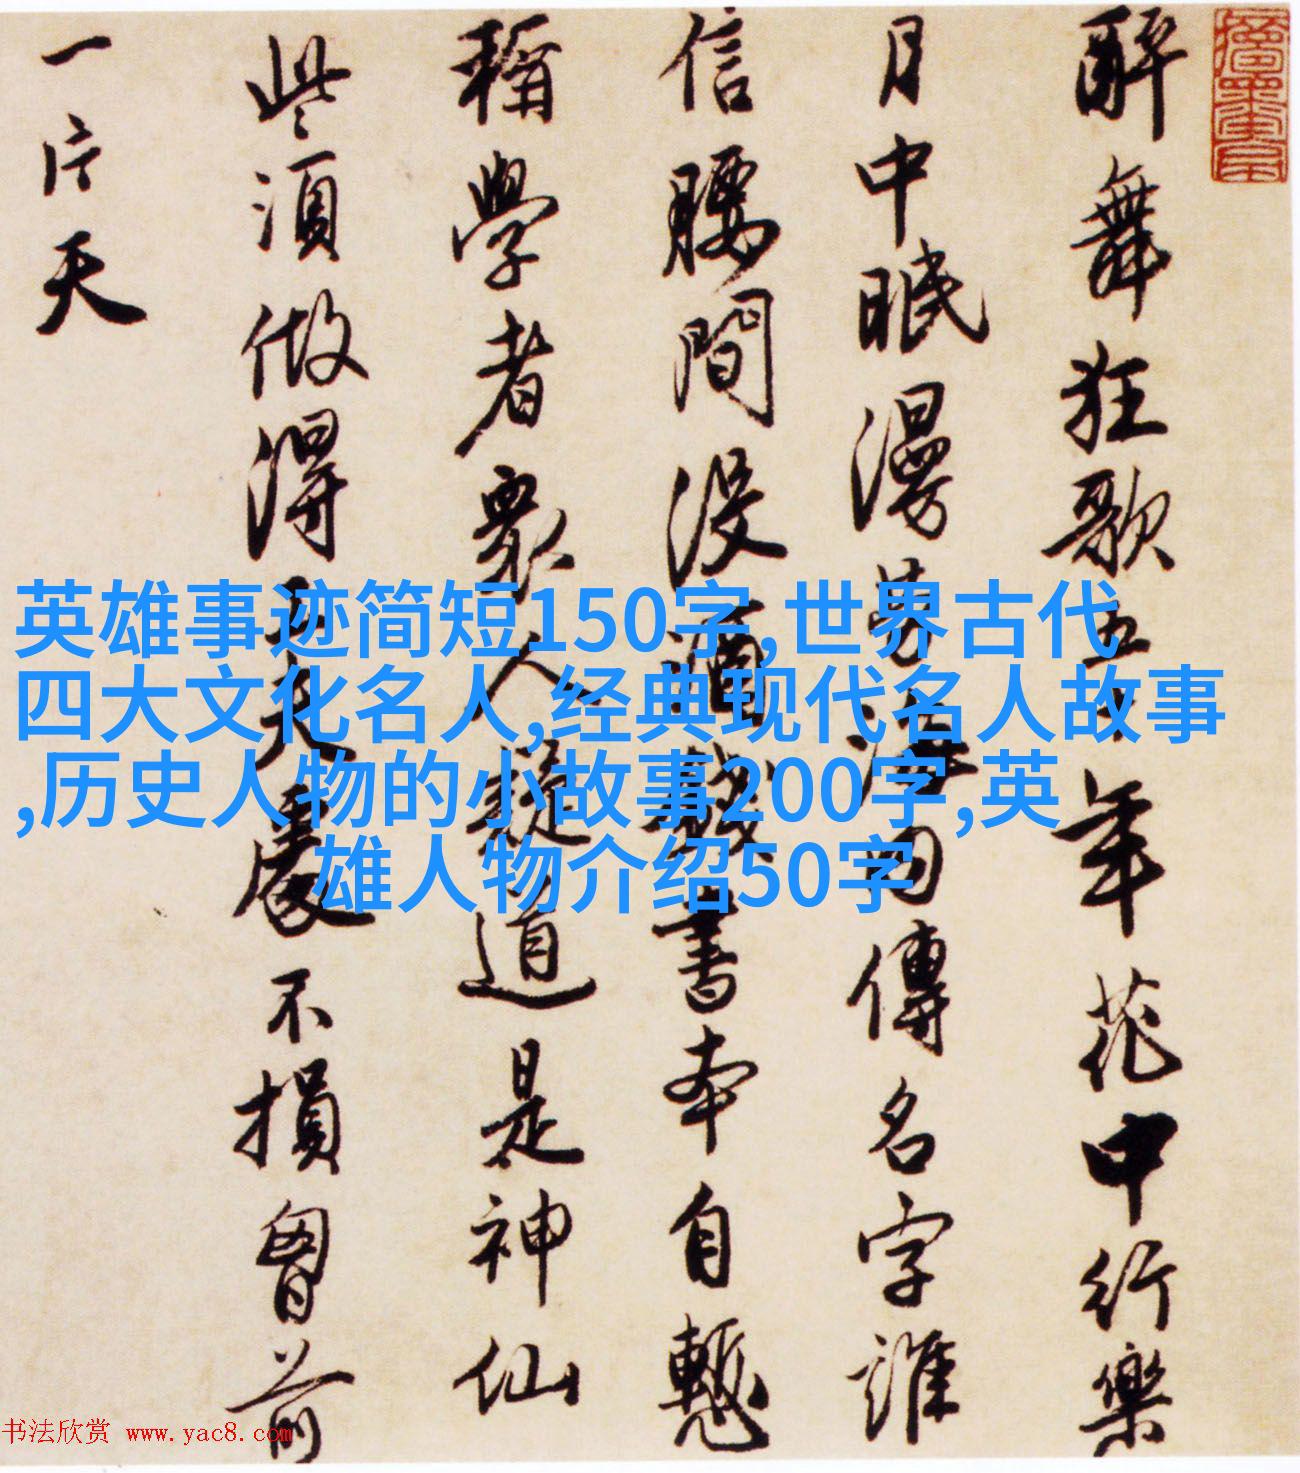 醉舞狂歌五十年花中行樂
月中眠漫勞海內傳名字誰
信腰間沒酒錢書本自慙
稱學者衆人疑道是神仙
些須做得工夫處不損胷前
一片天
英雄事迹简短150字,世界古代
四大文化名人,经典现代名人故事
,历史人物的小故事200字,英
雄人物介绍50字
书法欣赏 www.yac8.com